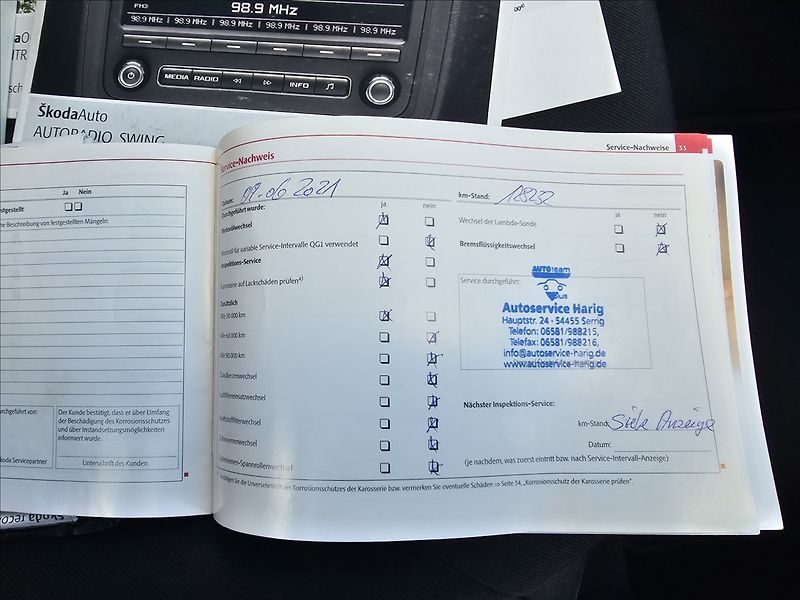 FM
98.9 MHz
98.9 MHz | 98.9 MHz | 98.9 MHz | 98.9 MHz | 98.9 MHz | 98.9 MHz
MEDIA RADIO INFO
ŠkodaAuto
AUTORADIO SWING
Ja Nein
festgestellt
Beschreibung von festgestellten Mängeln:
Durchgeführt von:
Škoda Servicepartner
Der Kunde bestätigt, dass er über Umfang
der Beschädigung des Korrosionsschutzes
und über Instandsetzungsmöglichkeiten
informiert wurde.
Unterschrift des Kunden
Service-Nachweise 33
Service-Nachweis
Datum: 09.06 2021
km-Stand:
Durchgeführt wurde: ja nein
Motorölwechsel
Motoröl für variable Service-Intervalle QG1 verwendet
Inspektions-Service
Karosserie auf Lackschäden prüfen a)
Zusätzlich
Alle 30 000 km
Alle 60 000 km
Alle 90 000 km
Zündkerzenwechsel
Luftfiltereinsatzwechsel
Kraftstofffilterwechsel
Zahnriemenwechsel
Zahnriemen-Spannrollenwechsel
ja nein
Wechsel der Lambda-Sonde
Bremsflüssigkeitswechsel
Service durchgeführt:
AUTOteam
plus
Autoservice Harig
Hauptstr. 24 - 54455 Serrig
Telefon: 06581/988215,
Telefax: 06581/988216,
info@autoservice-harig.de
www.autoservice-harig.de
Nächster Inspektions-Service:
km-Stand: Siehe Anzeige
Datum:
(je nachdem, was zuerst eintritt bzw. nach Service-Intervall-Anzeige)
a) Bestätigen Sie die Unversehrtheit des Korrosionsschutzes der Karosserie bzw. vermerken Sie eventuelle Schäden ⇒ Seite 34, „Korrosionsschutz der Karosserie prüfen".